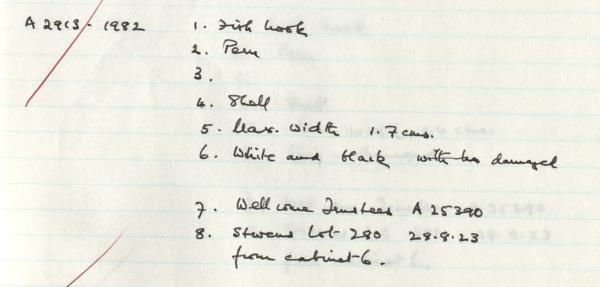 A 2913 - 1982 1. Fish hook
2. Peru
3.
4. Shell
5. Max. width 1.7 cms.
6. White and black damaged
7. Wellcome Trustees A 25390
8. Stevens Lot 280 28.8.23
from cabinet 6.